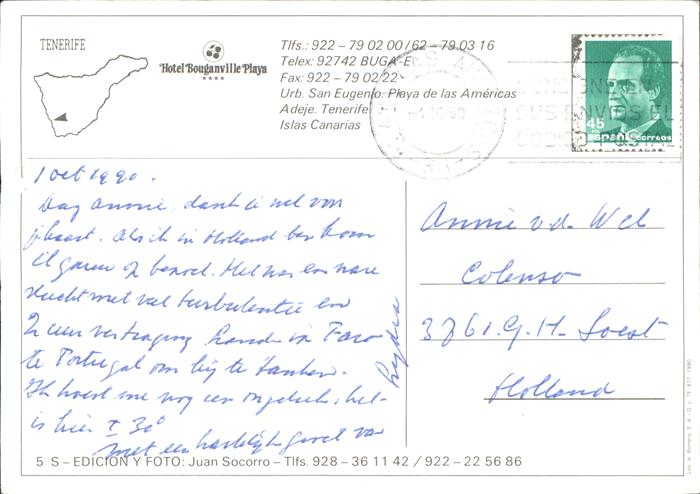 TENERIFE
Hotel Bouganville Playa
****
Tlfs.: 922 – 79 02 00 / 62 – 79 03 16
Telex: 92742 BUGA-E
Fax: 922 – 79 02 22
Urb. San Eugenio. Playa de las Américas
Adeje. Tenerife
Islas Canarias
45
España correos
1 oct 1990.
Dag Annie, dank je wel voor
je kaart. Als ik in Holland ben kom
ik garen op bezoek. Het was een nare
vlucht met veel turbulentie en
2 uur vertraging in Faro
te Portugal om bij te tanken.
Ik hoest me nog een ongeluk, het
is hier ± 30°
met een hartelijke groet van
Lydia
Annie v.d. Wel
Colenso
3761.G.H. Soest
Holland
5 S – EDICION Y FOTO: Juan Socorro – Tlfs. 928 – 36 11 42 / 922 – 22 56 86